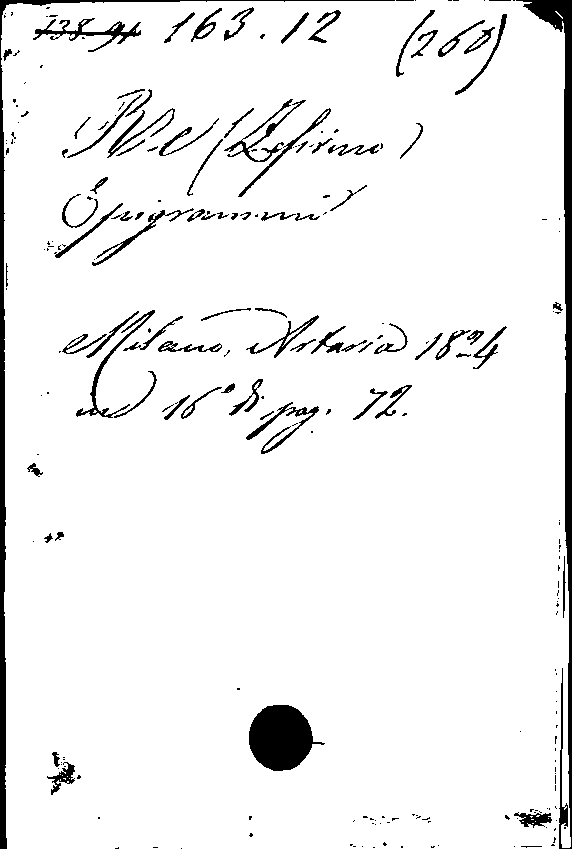 138.91 163.12 (260)
Re (Zefirino)
Epigrammi
Milano, Artaria 1824
in 16º di pag. 72.